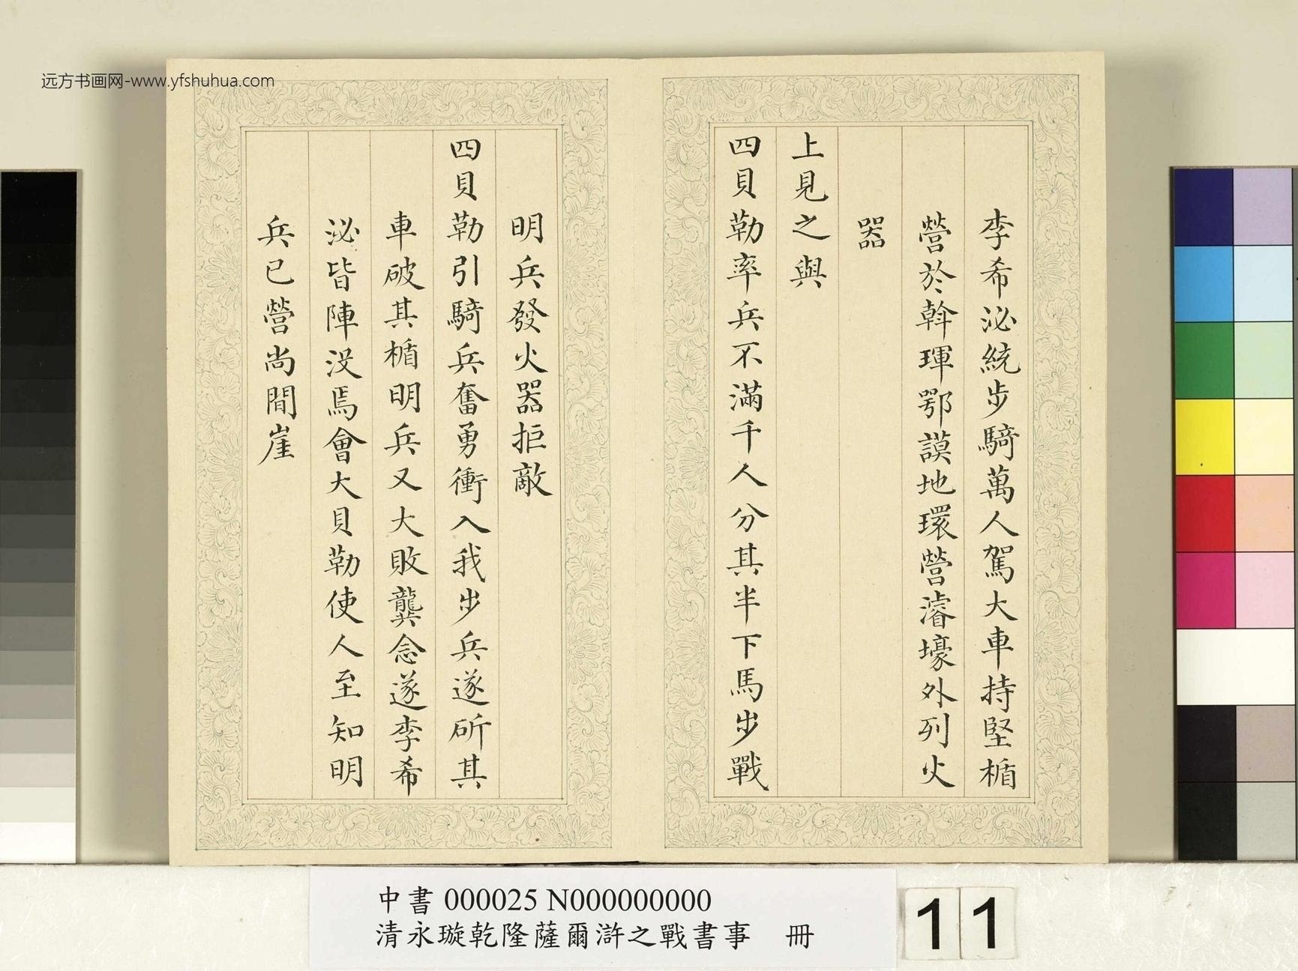 远方书画网-www.yfshuhua.com
李希泌統步騎萬人駕大車持堅楯
營於斡琿鄂謨地環營濬壕外列火
器
上見之與
四貝勒率兵不滿千人分其半下馬步戰
明兵發火器拒敵
四貝勒引騎兵奮勇衝入我步兵遂斫其
車破其楯明兵又大敗龔念遂李希
泌皆陣沒焉會大貝勒使人至知明
兵已營尚間崖
中書 000025 N000000000
清永璇乾隆薩爾滸之戰書事 冊
11